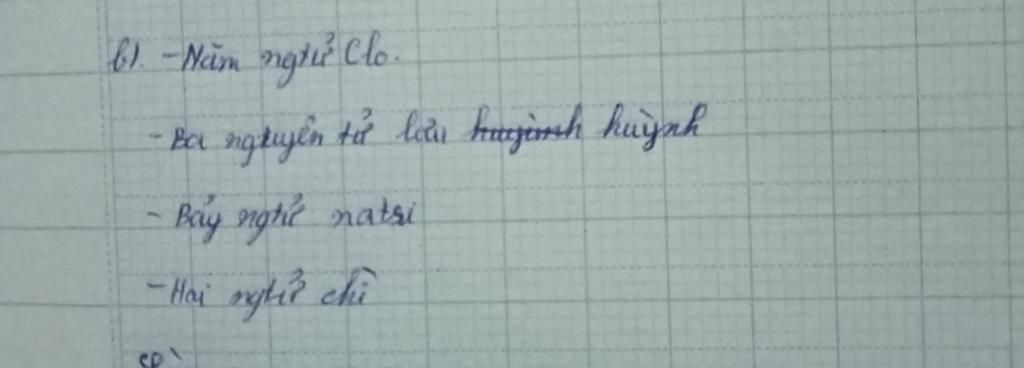 b). - Năm ngtử Clo.
- Ba nguyên tử lưu huỳnh
- Bảy ngtử natri
- Hai ngtử chì